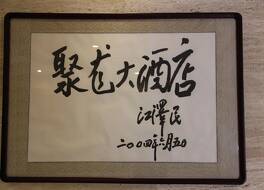 聚龙大酒店
江泽民
二〇〇四年六月五日